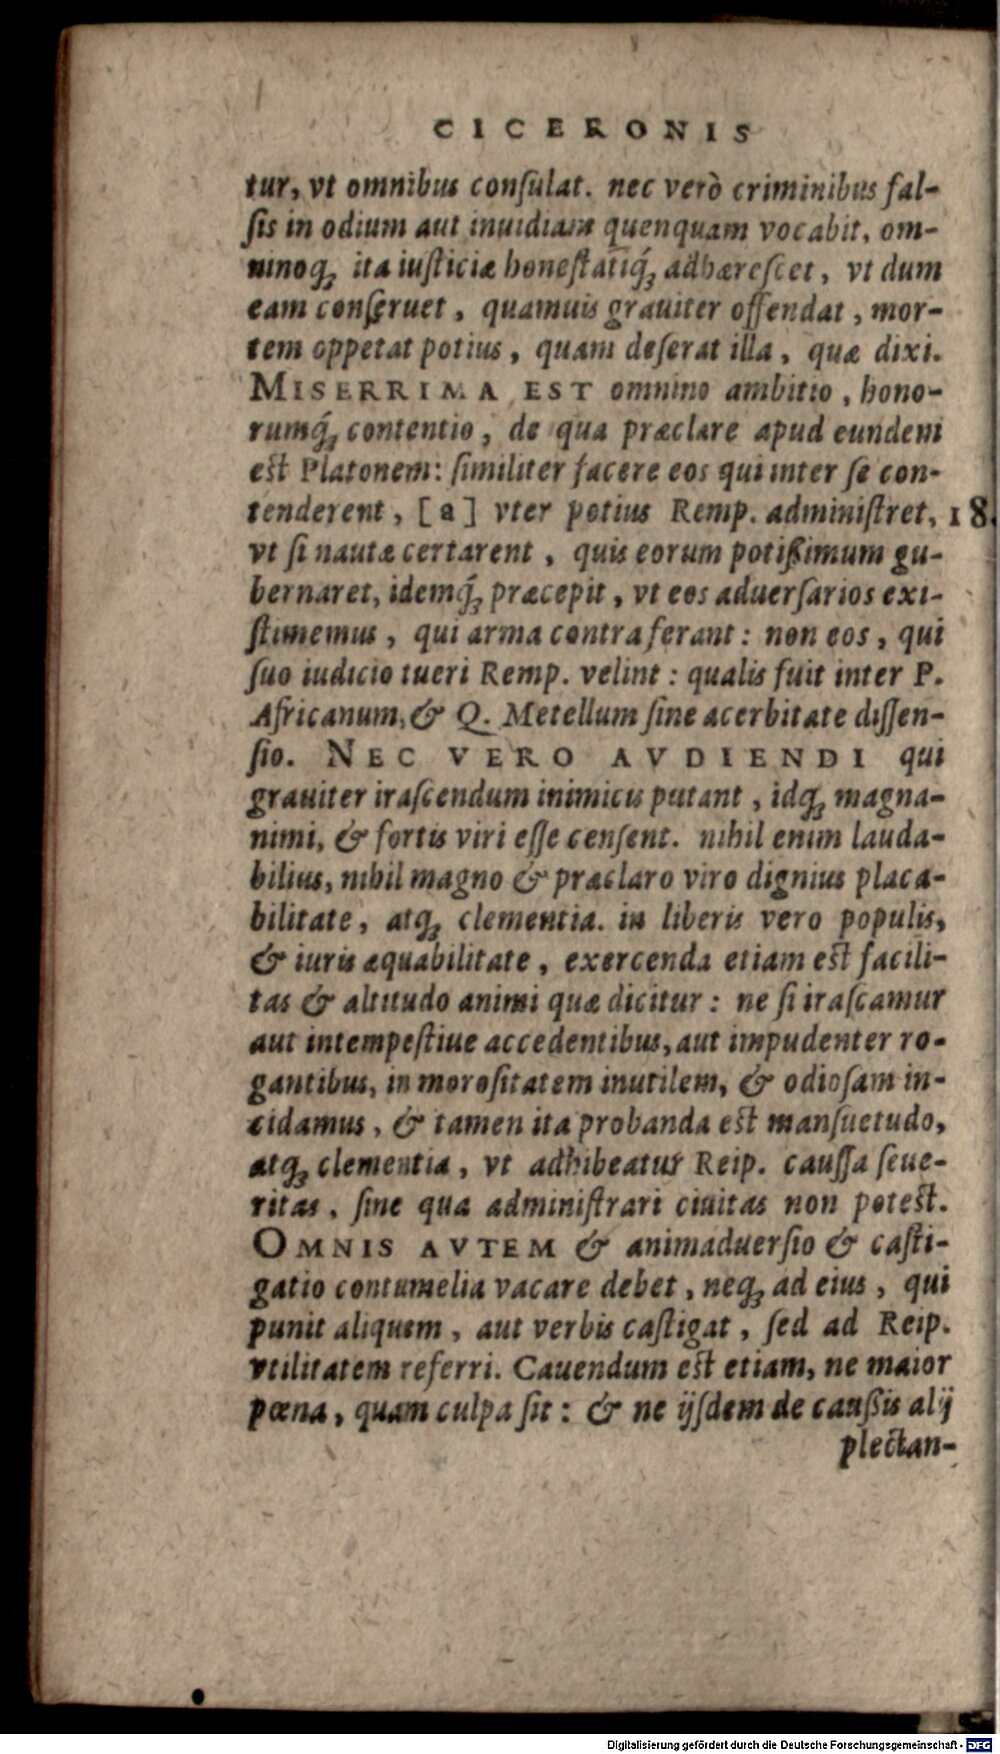 CICERONIS
tur, vt omnibus conſulat. nec verò criminibus fal-
ſis in odium aut inuidiam quenquam vocabit, om-
ninoq́ꝫ ita iuſticiæ honeſtatiq́ꝫ adhæreſcet, vt dum
eam conſeruet, quamuis grauiter offendat, mor-
tem oppetat potius, quam deſerat illa, quæ dixi.
MISERRIMA EST omnino ambitio, hono-
rumq́ꝫ contentio, de qua præclare apud eundem
est Platonem: ſimiliter facere eos qui inter ſe con-
tenderent, [a] vter potius Remp. adminiſtret, 18.
vt ſi nautæ certarent, quis eorum potißimum gu-
bernaret, idemq́ꝫ præcepit, vt eos aduerſarios exi-
ſtimemus, qui arma contra ferant: non eos, qui
ſuo iudicio tueri Remp. velint: qualis fuit inter P.
Africanum, & Q. Metellum ſine acerbitate diſſen-
ſio. NEC VERO AVDIENDI qui
grauiter iraſcendum inimicis putant, idqꝫ magna-
nimi, & fortis viri eſſe cenſent. nihil enim lauda-
bilius, nihil magno & præclaro viro dignius placa-
bilitate, atqꝫ clementia. in liberis vero populis,
& iuris æquabilitate, exercenda etiam est facili-
tas & altitudo animi quæ dicitur: ne ſi iraſcamur
aut intempeſtiue accedentibus, aut impudenter ro-
gantibus, in moroſitatem inutilem, & odioſam in-
cidamus, & tamen ita probanda est manſuetudo,
atqꝫ clementia, vt adhibeatur Reip. cauſſa ſeue-
ritas, ſine qua adminiſtrari ciuitas non potest.
OMNIS AVTEM & animaduerſio & caſti-
gatio contumelia vacare debet, neqꝫ ad eius, qui
punit aliquem, aut verbis caſtigat, ſed ad Reip.
vtilitatem referri. Cauendum est etiam, ne maior
pœna, quam culpa ſit: & ne ijſdem de cauſßis alij
plectan-
Digitalisierung gefördert durch die Deutsche Forschungsgemeinschaft - DFG